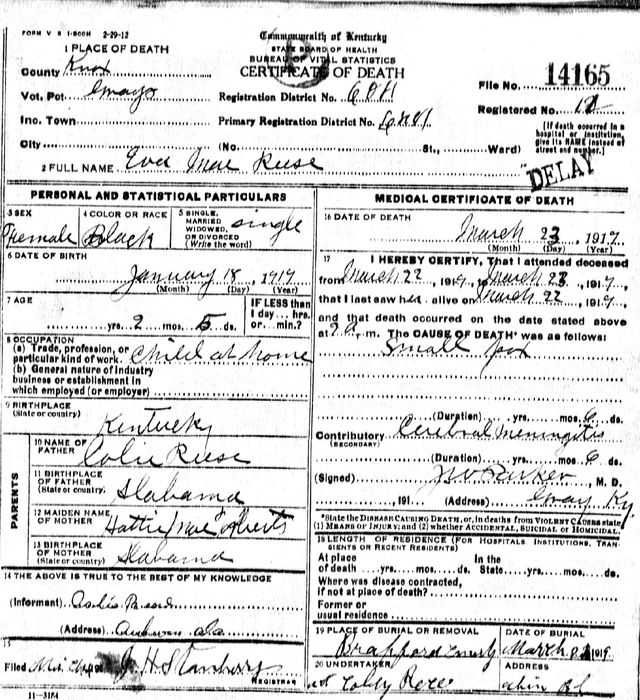 FORM V S 1-500M 2-29-12
Commonwealth of Kentucky
STATE BOARD OF HEALTH
BUREAU OF VITAL STATISTICS
CERTIFICATE OF DEATH
1 PLACE OF DEATH
County Knox
Vot. Pct
Inc. Town
City
Registration District No. 6081
Primary Registration District No. 6801
(No. St., Ward)
File No. 14165
Registered No. 12
[If death occurred in a hospital or institution, give its NAME instead of street and number.]
2 FULL NAME Eva Mae Reese
DELAY
PERSONAL AND STATISTICAL PARTICULARS
3 SEX
Female
4 COLOR OR RACE
Black
5 SINGLE, MARRIED WIDOWED, OR DIVORCED (Write the word)
single
6 DATE OF BIRTH
January 18, 1917
(Month) (Day) (Year)
7 AGE
yrs. 2 mos. 5 ds.
IF LESS than 1 day... hrs. or... min.?
8 OCCUPATION
(a) Trade, profession, or particular kind of work. Child at home
(b) General nature of industry
business or establishment in
which employed (or employer)
9 BIRTHPLACE
(State or country)
Kentucky
PARENTS
10 NAME OF FATHER
Reese
11 BIRTHPLACE OF FATHER
(State or country)
Alabama
12 MAIDEN NAME OF MOTHER
Hattie Mae
13 BIRTHPLACE OF MOTHER
(State or country)
Alabama
14 THE ABOVE IS TRUE TO THE BEST OF MY KNOWLEDGE
(Informant)
(Address) Auburn Ala
15
Filed J. H. Stanberry
REGISTRAR
11-3184
MEDICAL CERTIFICATE OF DEATH
16 DATE OF DEATH
March 23, 1917
(Month) (Day) (Year)
17 I HEREBY CERTIFY, That I attended deceased
from March 22, 1917, to March 23, 1917,
that I last saw her alive on March 22, 1917,
and that death occurred on the date stated above
at 2 a. m. The CAUSE OF DEATH* was as follows:
Small pox
(Duration) yrs. mos. 6 ds.
Contributory Cerebral meningitis
(SECONDARY)
(Duration) yrs. mos. 6 ds.
(Signed) Parker, M. D.
, 191 (Address) Gray Ky.
*State the DISEASE CAUSING DEATH, or, in deaths from VIOLENT CAUSES state
(1) MEANS OF INJURY; and (2) whether ACCIDENTAL, SUICIDAL or HOMICIDAL
18 LENGTH OF RESIDENCE (FOR HOSPITALS INSTITUTIONS, TRANSIENTS OR RECENT RESIDENTS)
At place of death yrs. mos. ds. In the State yrs. mos. ds.
Where was disease contracted,
if not at place of death?
Former or
usual residence
19 PLACE OF BURIAL OR REMOVAL
DATE OF BURIAL
March 191
20 UNDERTAKER
ADDRESS